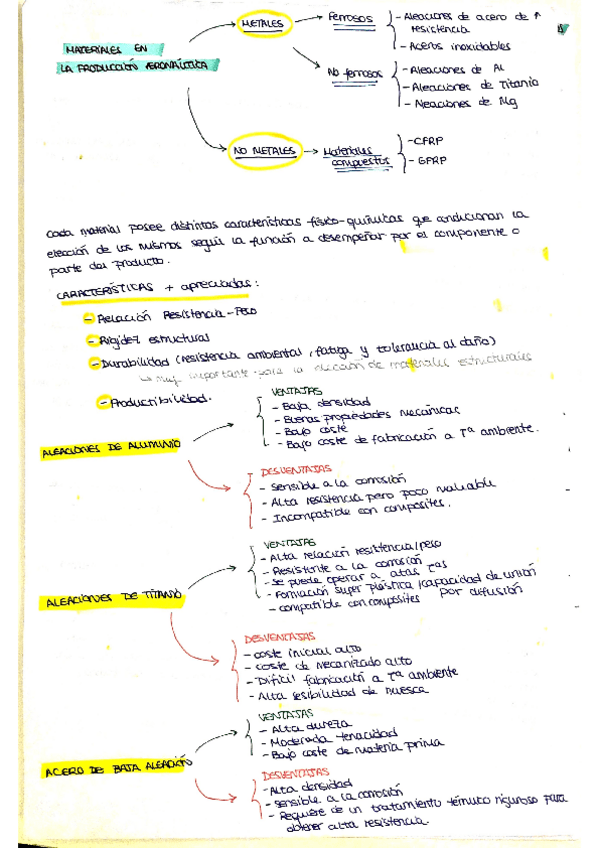 MATERIALES EN
LA PRODUCCIÓN AERONAÚTICA
METALES
Ferrosos
- Aleaciones de acero de ↑
resistencia
- Aceros inoxidables
No ferrosos
- Aleaciones de Al
- Aleaciones de Titanio
- Aleaciones de Mg
NO METALES
Materiales
compuestos
- CFRP
- GFRP
Cada material posee distintas características físico-químicas que condicionan la
elección de los mismos según la función a desempeñar por el componente o
parte del producto.
CARACTERÍSTICAS + apreciadas:
- Relación Resistencia-Peso
- Rigidez estructural
- Durabilidad (resistencia ambiental, fatiga y tolerancia al daño)
↳ Muy importante para la elección de materiales estructurales
- Productibilidad.
ALEACIONES DE ALUMINIO
VENTAJAS
- Baja densidad
- Buenas propiedades mecánicas
- Bajo coste
- Bajo coste de fabricación a Tª ambiente.
DESVENTAJAS
- Sensible a la corrosión
- Alta resistencia pero poco
- Incompatible con composites.
ALEACIONES DE TITANIO
VENTAJAS
- Alta relación resistencia/peso
- Resistente a la corrosión
- Se puede operar a altas Tªs
- Formación super plástica /capacidad de unión
por difusión
- compatible con composites
DESVENTAJAS
- coste inicial alto
- coste de mecanizado alto
- Difícil fabricación a Tª ambiente
- Alta sesibilidad de muesca
ACERO DE BAJA ALEACIÓN
VENTAJAS
- Alta dureza
- Moderada tenacidad
- Bajo coste de materia prima
DESVENTAJAS
- Alta densidad
- sensible a la corrosión
- Requiere de un tratamiento térmico riguroso para
obtener alta resistencia.